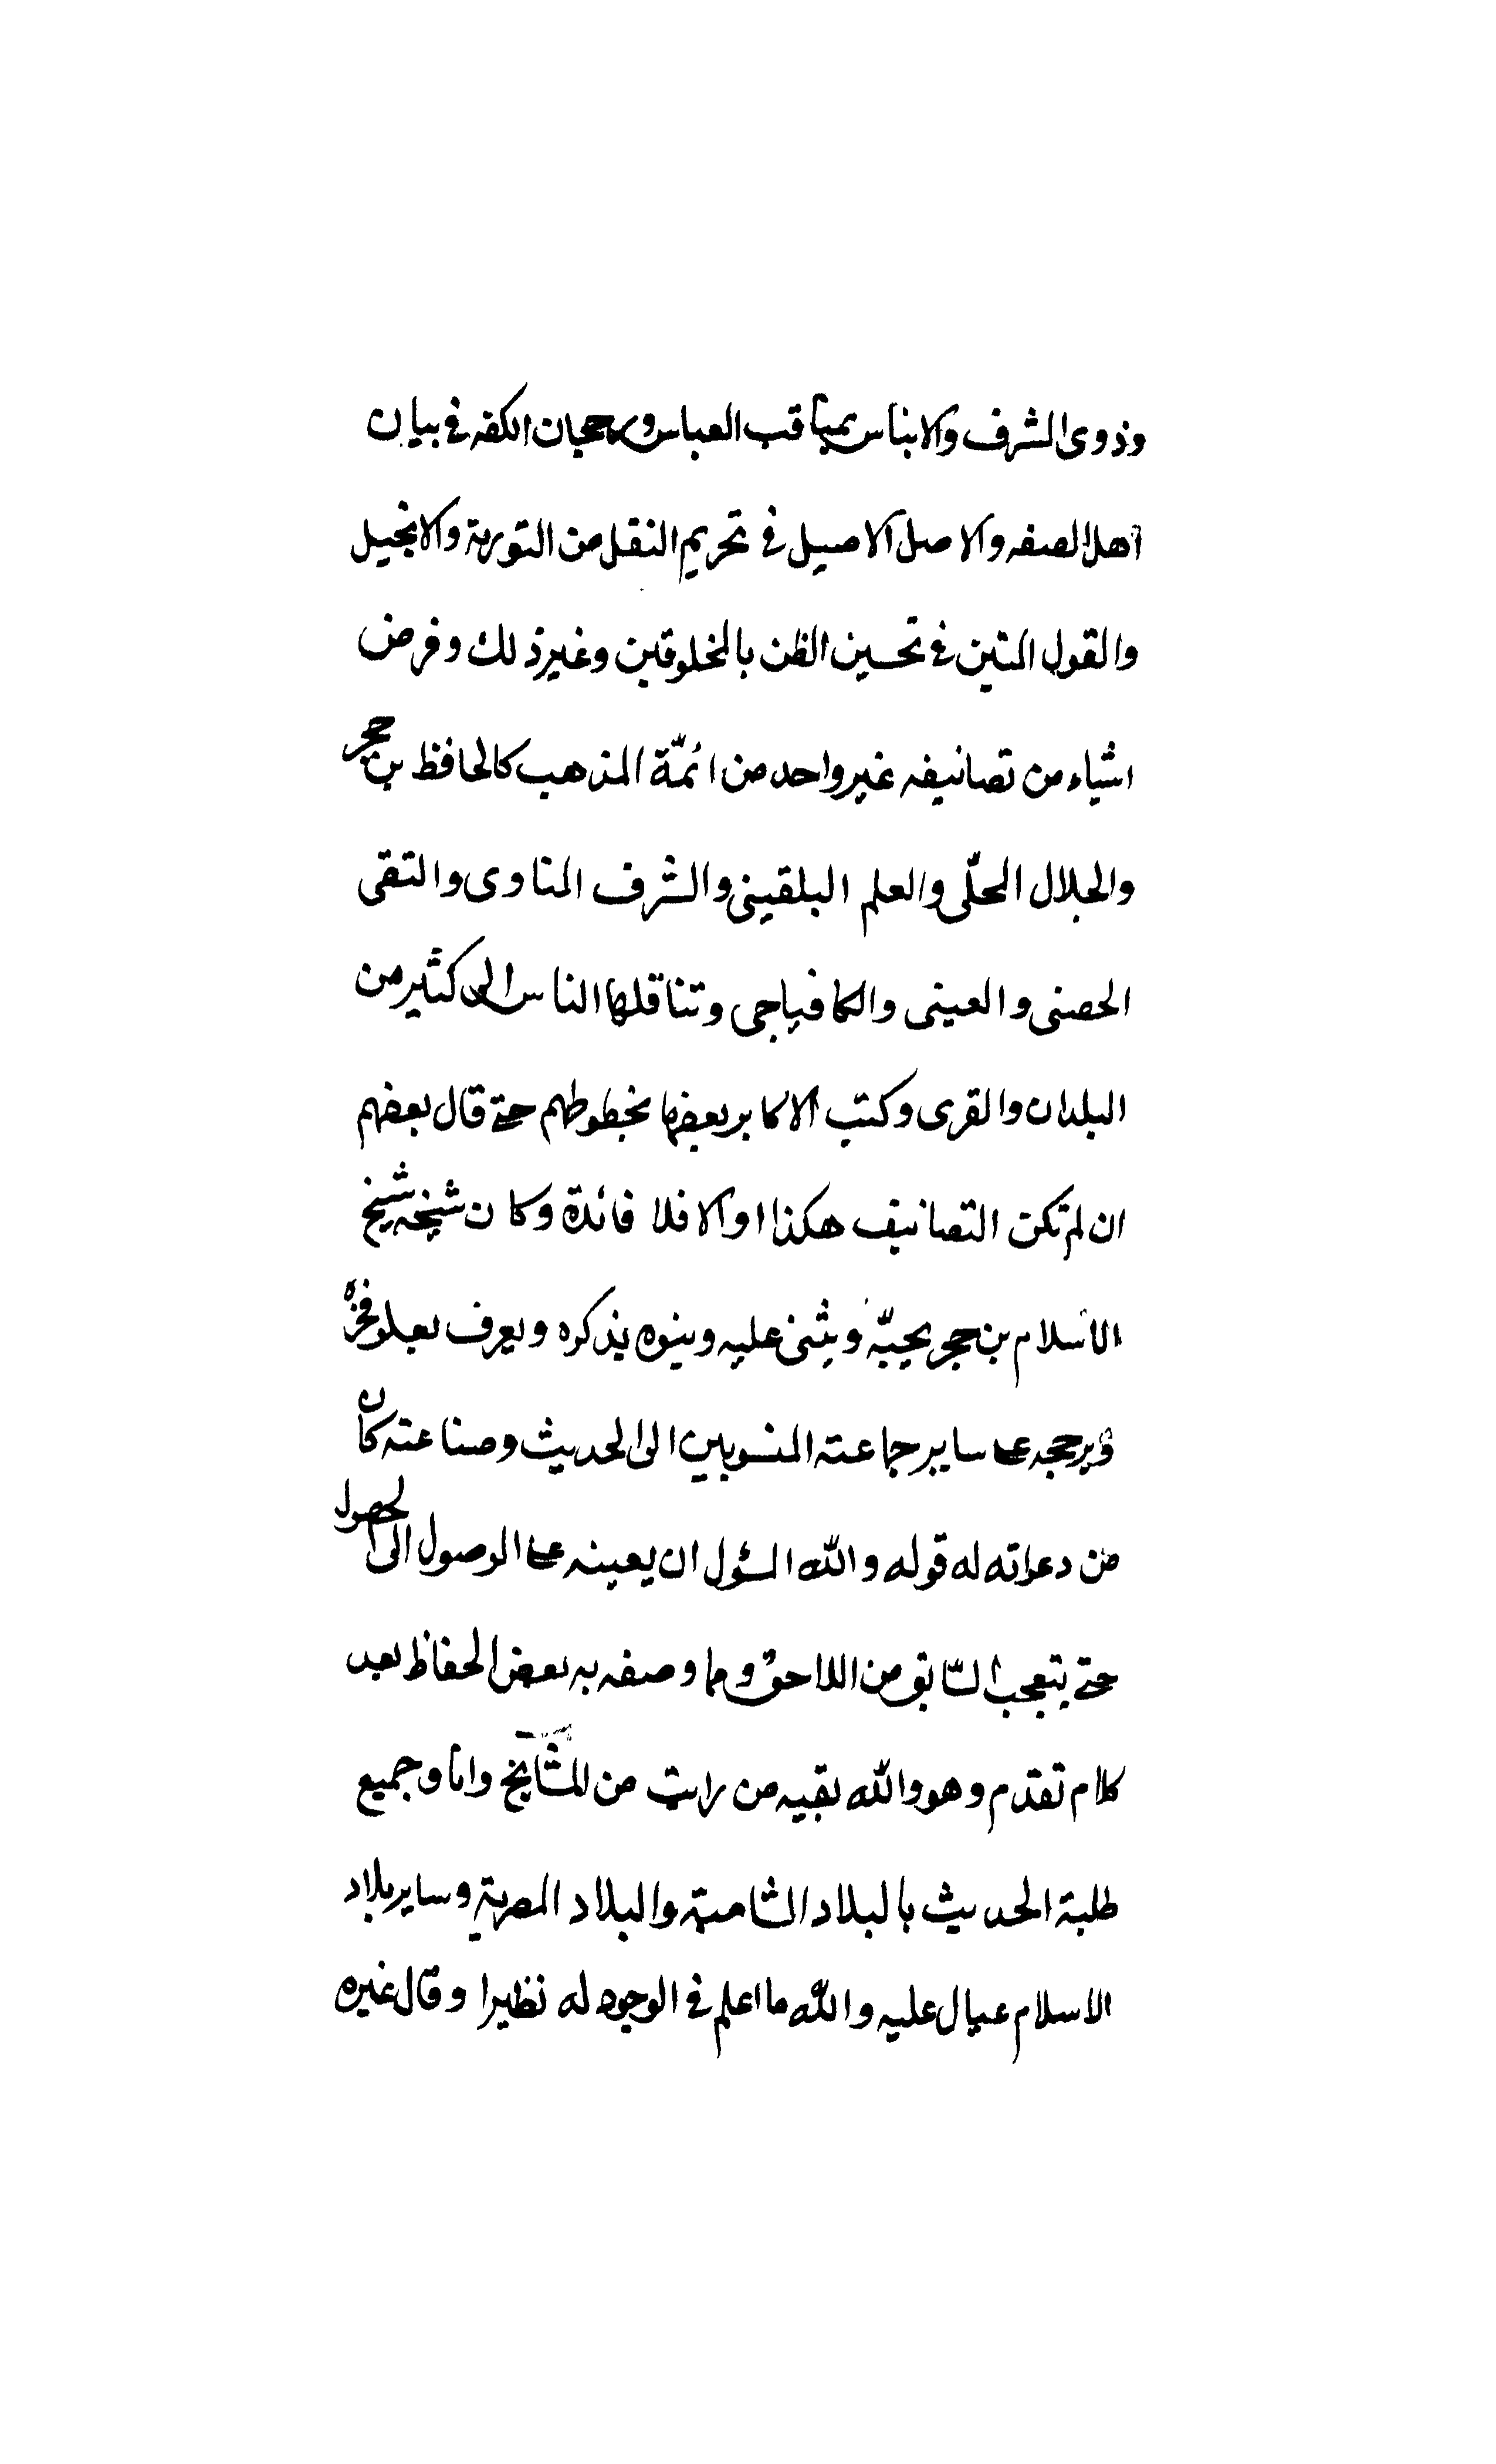 وذوى الشرف والابناس بمناقب العباس ورجحان الكفه في بيان
اهل الصفه والاصل الاصيل في تحريم النقل من التورية والانجيل
والقول المتين في تحسين الظن بالمخلوقين وغير ذلك وفرض
اشياء من تصانيفه غير واحد من ائمّة المذهب كالحافظ بن حجر
والجلال المحلّى والعلم البلقيني والشرف المناوى والتقى
الحصنى والعينى والكافياجى وتناقلها الناس الى كثير من
البلدان والقرى وكتب الاكابر بعضها بخطوطهم حتى قال بعضهم
ان لم تكن التصانيف هكذا والا فلا فائدة وكان شيخه شيخ
الاسلام بن حجر يحبّه ويثنى عليه وينوه بذكره ويعرف بعلو فخره
ويرجحه على ساير جماعته المنسوبين الى الحديث وصناعته كان
من دعواته له قوله والله المسؤل ان يعينه على الوصول الى الحصول
حتى يتعجب السّابق من اللاحق ومما وصفه به بعض الحفاظ بعد
كلام تقدم وهو والله بقيه من رايت من المشايخ وانا وجميع
طلبة الحديث بالبلاد الشامية والبلاد المصرية وساير بلاد
الاسلام عيال عليه والله ما اعلم في الوجود له نظيرا وقال غيره